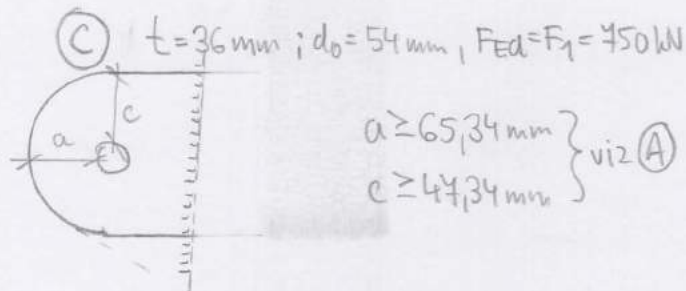 Ⓒ t=36mm ; d₀=54mm, F_Ed=F₁=750kN
c
a
a≥65,34mm
c≥47,34mm
} viz Ⓐ